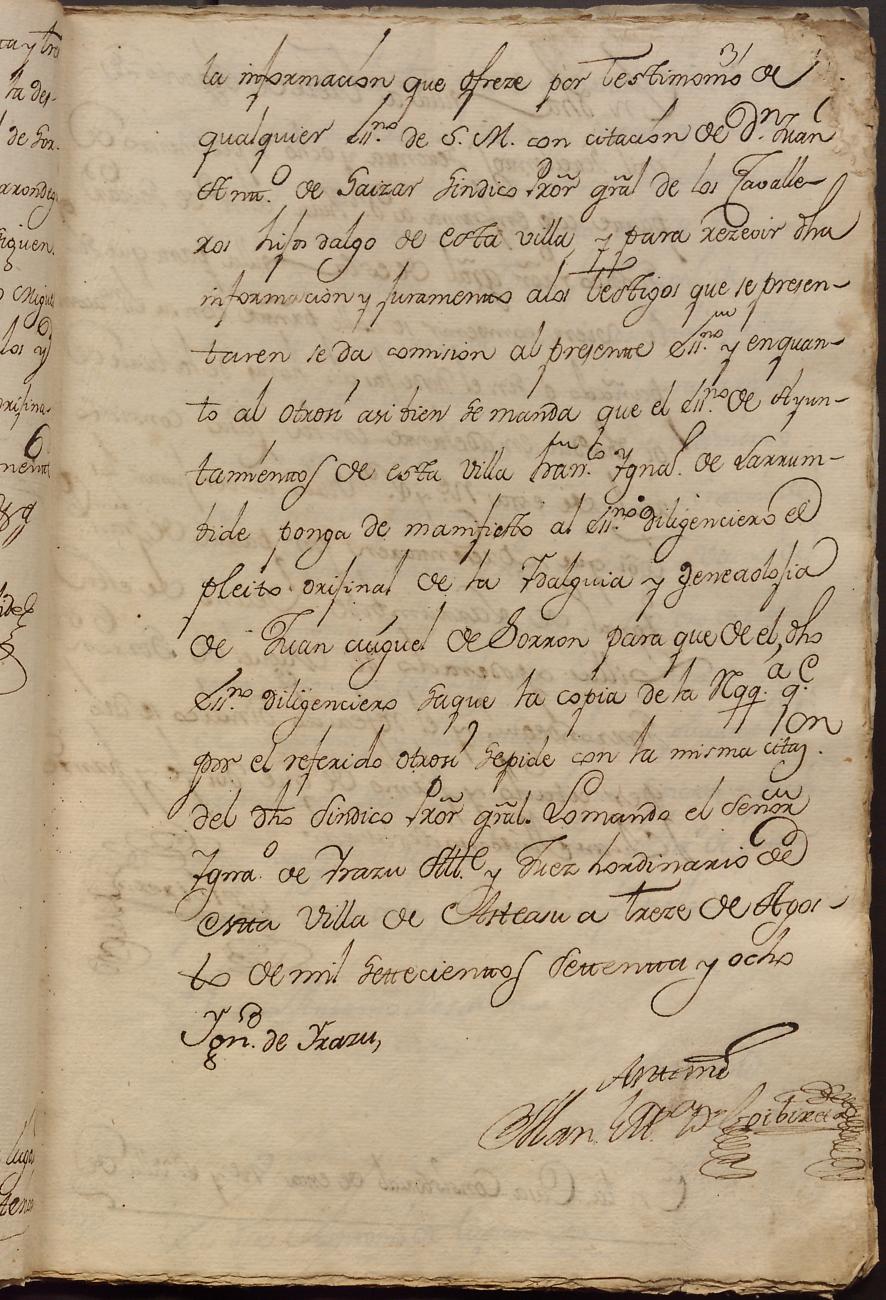 31
la informacion que ofreze por testimonio de
qualquier Ess.no de S. M. con citacion de D.n Juan
Antt.o de Saizar Sindico Pror gral de los Cavalle-
ros hijos dalgo de esta villa, y para rezevir dha
informacion y juramento a los testigos que se presen-
taren se da comision al presente Ess.no y en quan-
to al otrosi asi bien se manda que el Ess.no de Ayun-
tamientos de esta villa Fran.co Ygna.o de Larrum-
bide ponga de manifiesto al Ess.no diligenciero el
pleito orijinal de la Ydalguia y Genealojia
de Juan Miguel de Sorron para que de el, dho
Ess.no diligenciero saque la copia de la
por el referido otrosi se pide con la misma citaz.on
del dho Sindico Pror gral. Lo mando el Señor
Ygna.o de Yrazu All.e y Juez hordinario de
esta Villa de Asteasu a treze de Agos-
to de mil settecientos settenta y ocho
Ygn.o de Yrazu,
Antemi
Man.l